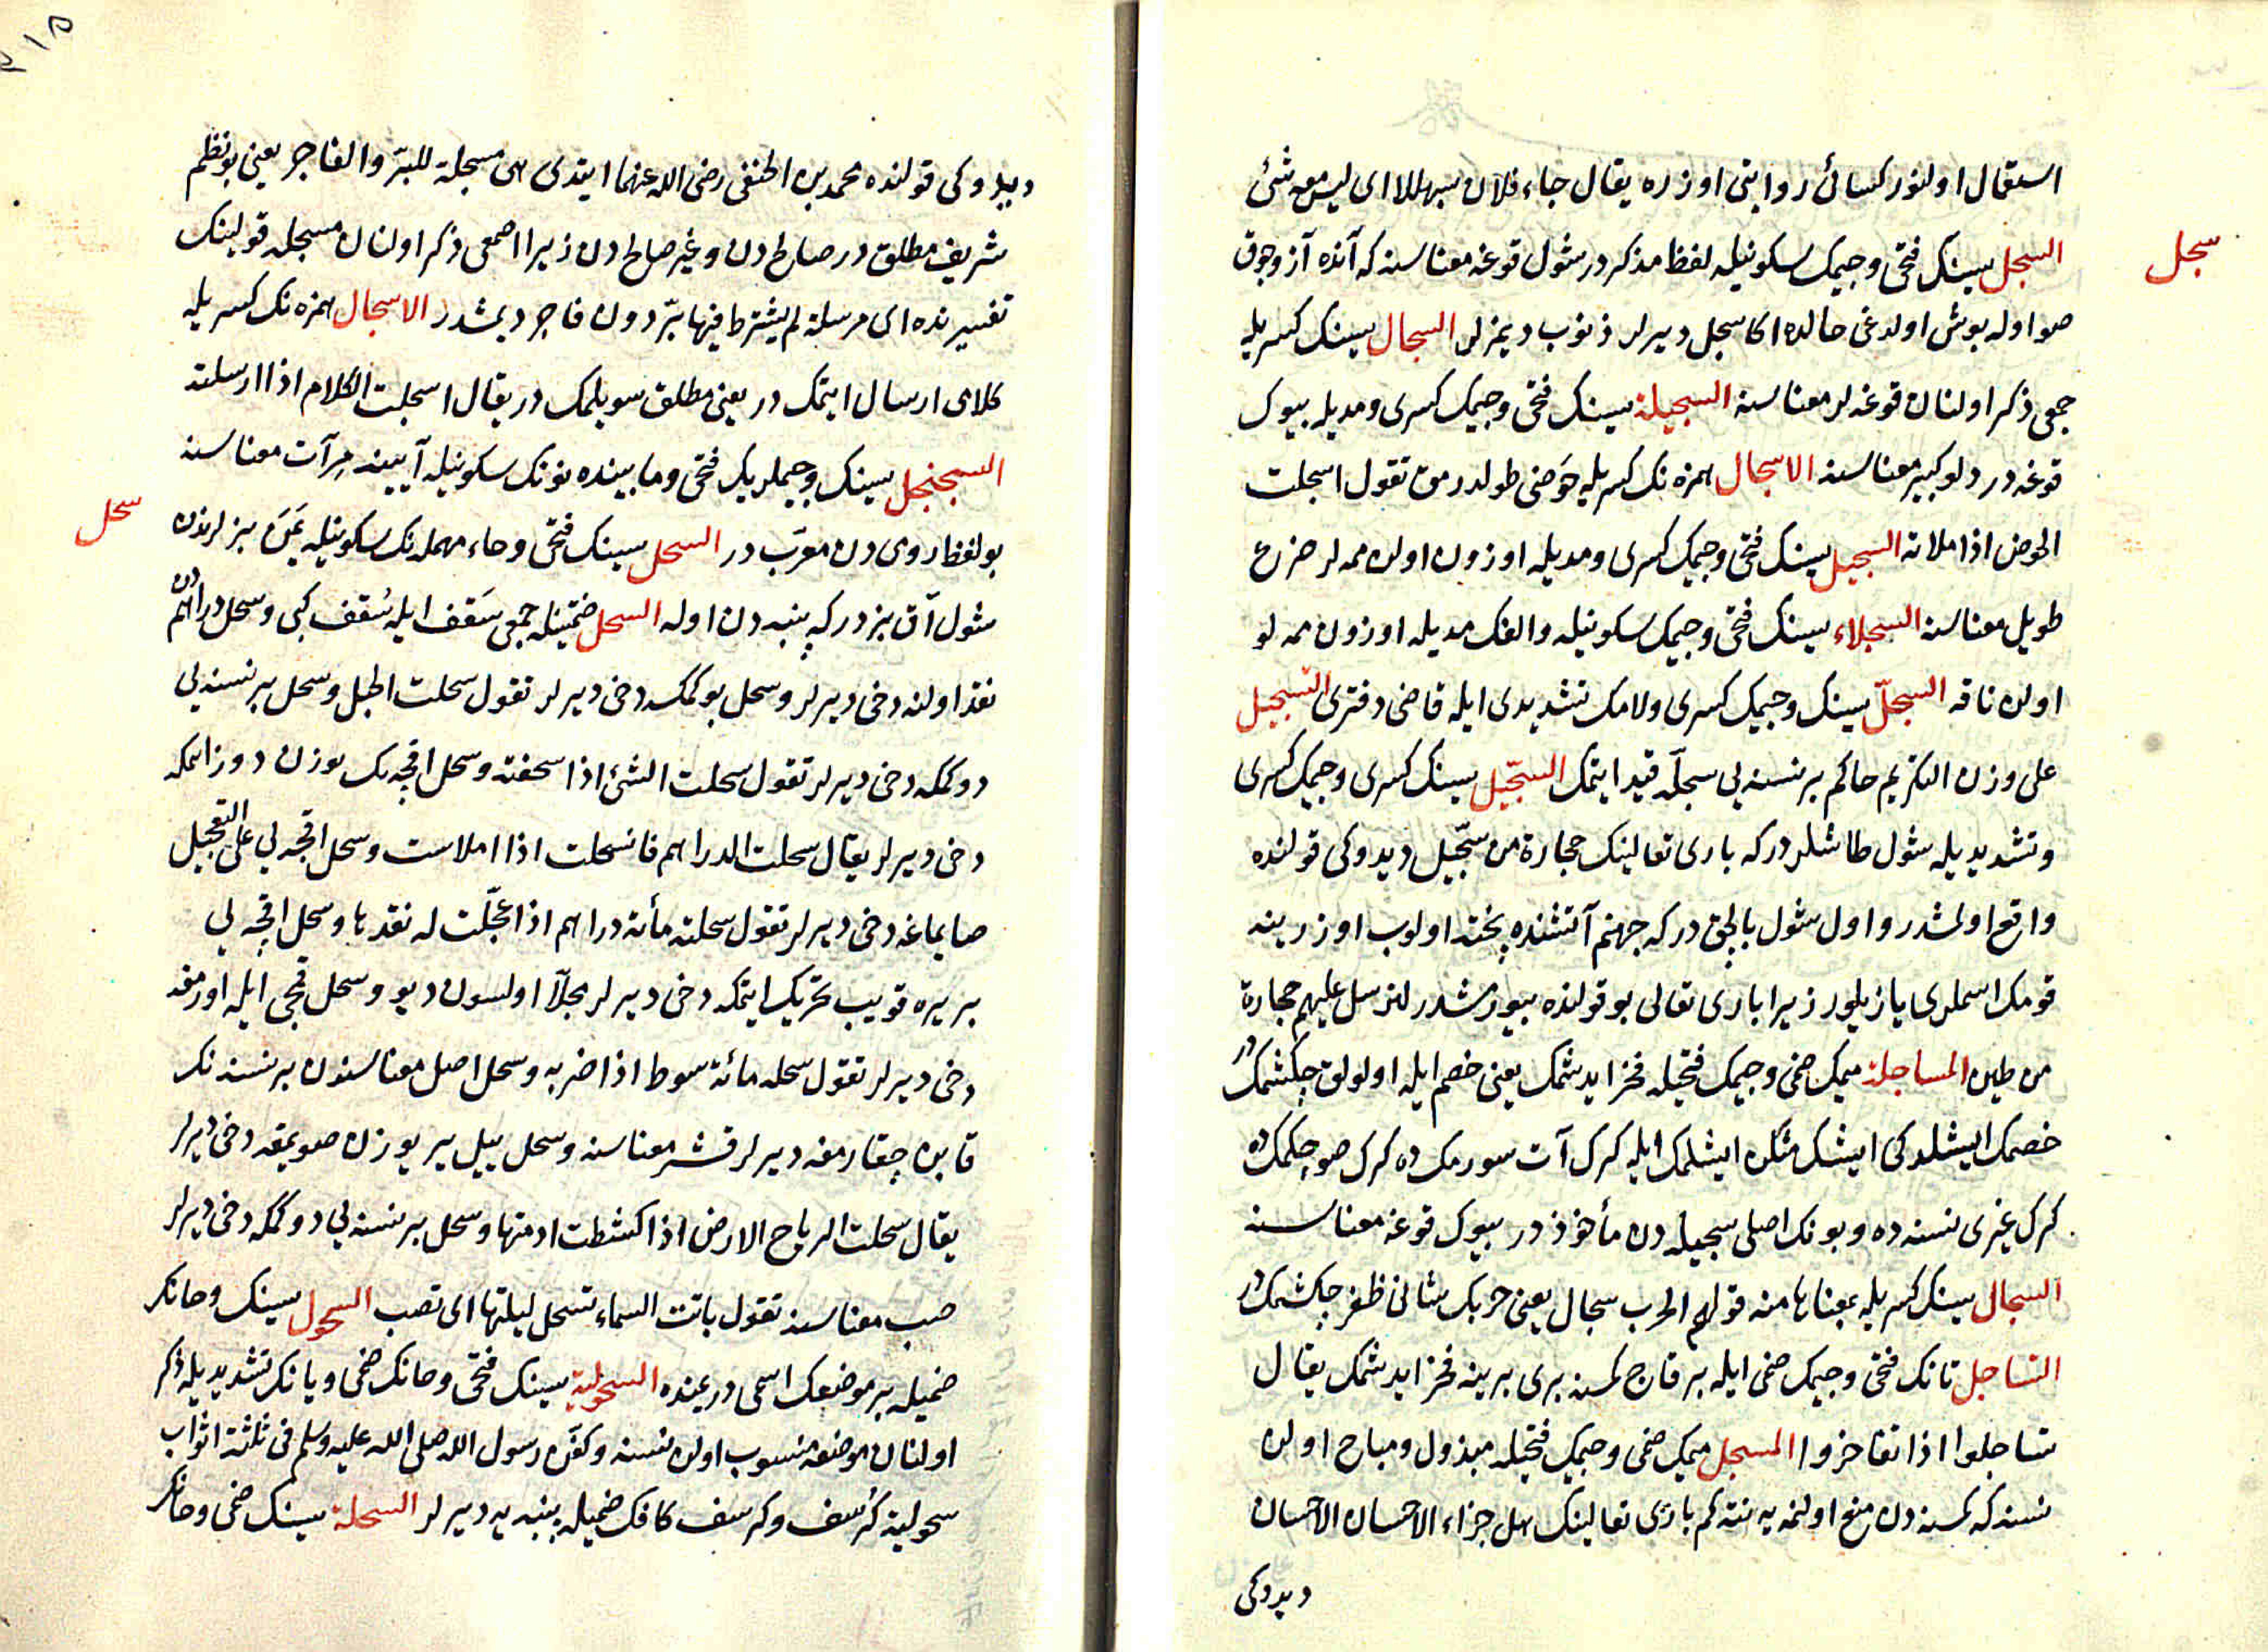 استعمال اولنور كسائى روايتى اوزره يقال جاء فلان سبهللا اى ليس معه شئ
سجل
السجل سينك فتحى وجيمك سكونيله لفظا مذكر در شول قوغه معناسنه كه آنده آز وجوق
صو اوله بوش اولدغى حالده اكا سجل ديرلر ذنوب ديمزلر السجال سينك كسريله
جمعى ذكر اولنان قوغه لر معناسنه السجيلة سينك فتحى وجيمك كسرى ومديله بيوك
قوغه در دلو كبير معناسنه الاسجال همزه نك كسريله حوضى طولدرمق تقول اسجلت
الحوض اذا ملاته السجيل سينك فتحى وجيمك كسرى ومديله اوزون اولان ممه لر ضرع
طويل معناسنه السجلاء سينك فتحى وجيمك سكونيله والفك مديله اوزون ممه لو
اولان ناقه السجلّ سينك وجيمك كسرى ولامك تشديدى ايله قاضى دفترى التسجيل
على وزن التكريم حاكم بر نسنه يى سجلّه قيد ايتمك السجّيل سينك كسرى وجيمك كسرى
وتشديديله شول طاشلردر كه بارى تعالينك حجارة من سجّيل ديدوكى قولنده
واقع اولمشدر و اول شول بالجق در كه جهنم آتشنده پخته اولوب اوزرينه
قومك اسملرى يازيلور زيرا بارى تعالى بو قولنده بيورمشدر لنرسل عليهم حجارة
من طين المساجلة ميمك ضمى وجيمك فتحيله فخر ايدشمك يعنى خصم ايله اولولق چكشمك در
خصمك ايشلدوكى ايشك مثلن ايشلمك ايله كرك آت سورمك ده كرك صو چكمك ده
كرك غيرى نسنه ده و بونك اصلى سجيله دن مأخوذ در بيوك قوغه معناسنه
السجال سينك كسريله بمعناها منه قولهم الحرب سجال يعنى حربك شانى ظفر چكشمك در
التساجل تانك فتحى وجيمك ضمى ايله بر قاچ كمسنه برى برينه فخر ايدشمك يقال
تساجلوا اذا تفاخروا المسجل ميمك ضمى وجيمك فتحيله مبذول ومباح اولان
نسنه كه كمسنه دن منع اولنميه نته كم بارى تعالينك هل جزاء الاحسان الا احسان
ديدوكى
ديدوكى قولنده محمد بن الحنفى رضى الله عنهما ايتدى هى مسجلة للبرّ والفاجر يعنى بو نظم
شريف مطلق در صالح دن وغير صالح دن زيرا اصمعى ذكر اولنان مسجله قولينك
تفسيرنده اى مرسلة لم يشترط فيها برّ دون فاجر ديمشدر الاسجال همزه نك كسريله
كلامى ارسال ايتمك در يعنى مطلق سويلمك در يقال اسجلت الكلام اذا ارسلته
السجنجل سينك وجيملريك فتحى وما بينده نونك سكونيله آيينه مرآت معناسنه
سحل
بو لفظ رومى دن معرّب در السحل سينك فتحى وحاء مهمله نك سكونيله يمن بزلرندن
شول آق بزدر كه پنبه دن اوله السحل ضمتينله جمعى سَقف ايله سُقف كبى وسحل دراهم دن
نقد اولنه دخى ديرلر وسحل بوكمك دخى ديرلر تقول سحلت الحبل وسحل بر نسنه يى
دوكمكه دخى ديرلر تقول سحلت الشئ اذا سحقته وسحل اقچه نك يوزن دوز ايتمكه
دخى ديرلر يقال سحلت الدراهم فانسحلت اذا املاست وسحل اقچه يى على التعجيل
صايماغه دخى ديرلر تقول سحلته مأئة دراهم اذا عجّلت له نقدها وسحل اقچه يى
بر يره قويب تحريك ايتمكه دخى ديرلر مجلّا اولسون ديو وسحل قمچى ايله اورمغه
دخى ديرلر تقول سحله مائة سوط اذا ضربه وسحل اصل معناسندن بر نسنه نك
قابن چقارمغه ديرلر قشر معناسنه وسحل ييل ير يوزن صويمغه دخى ديرلر
يقال سحلت الرياح الارض اذا كشطت ادمتها وسحل بر نسنه يى دوكمكه دخى ديرلر
صب معناسنه تقول باتت السماء تسحل ليلتها اى تصب السحول سينك وحانك
ضميله بر موضعك اسمى در يمنده السحولية سينك فتحى وحانك ضمى ويانك تشديديله ذكر
اولنان موضعه منسوب اولان نسنه وكفن رسول الله صلى الله عليه وسلم فى ثلثة اثواب
سحولية كُرْسف وكرسف كافك ضميله پنبه يه ديرلر السحلة سينك ضمى وحانك